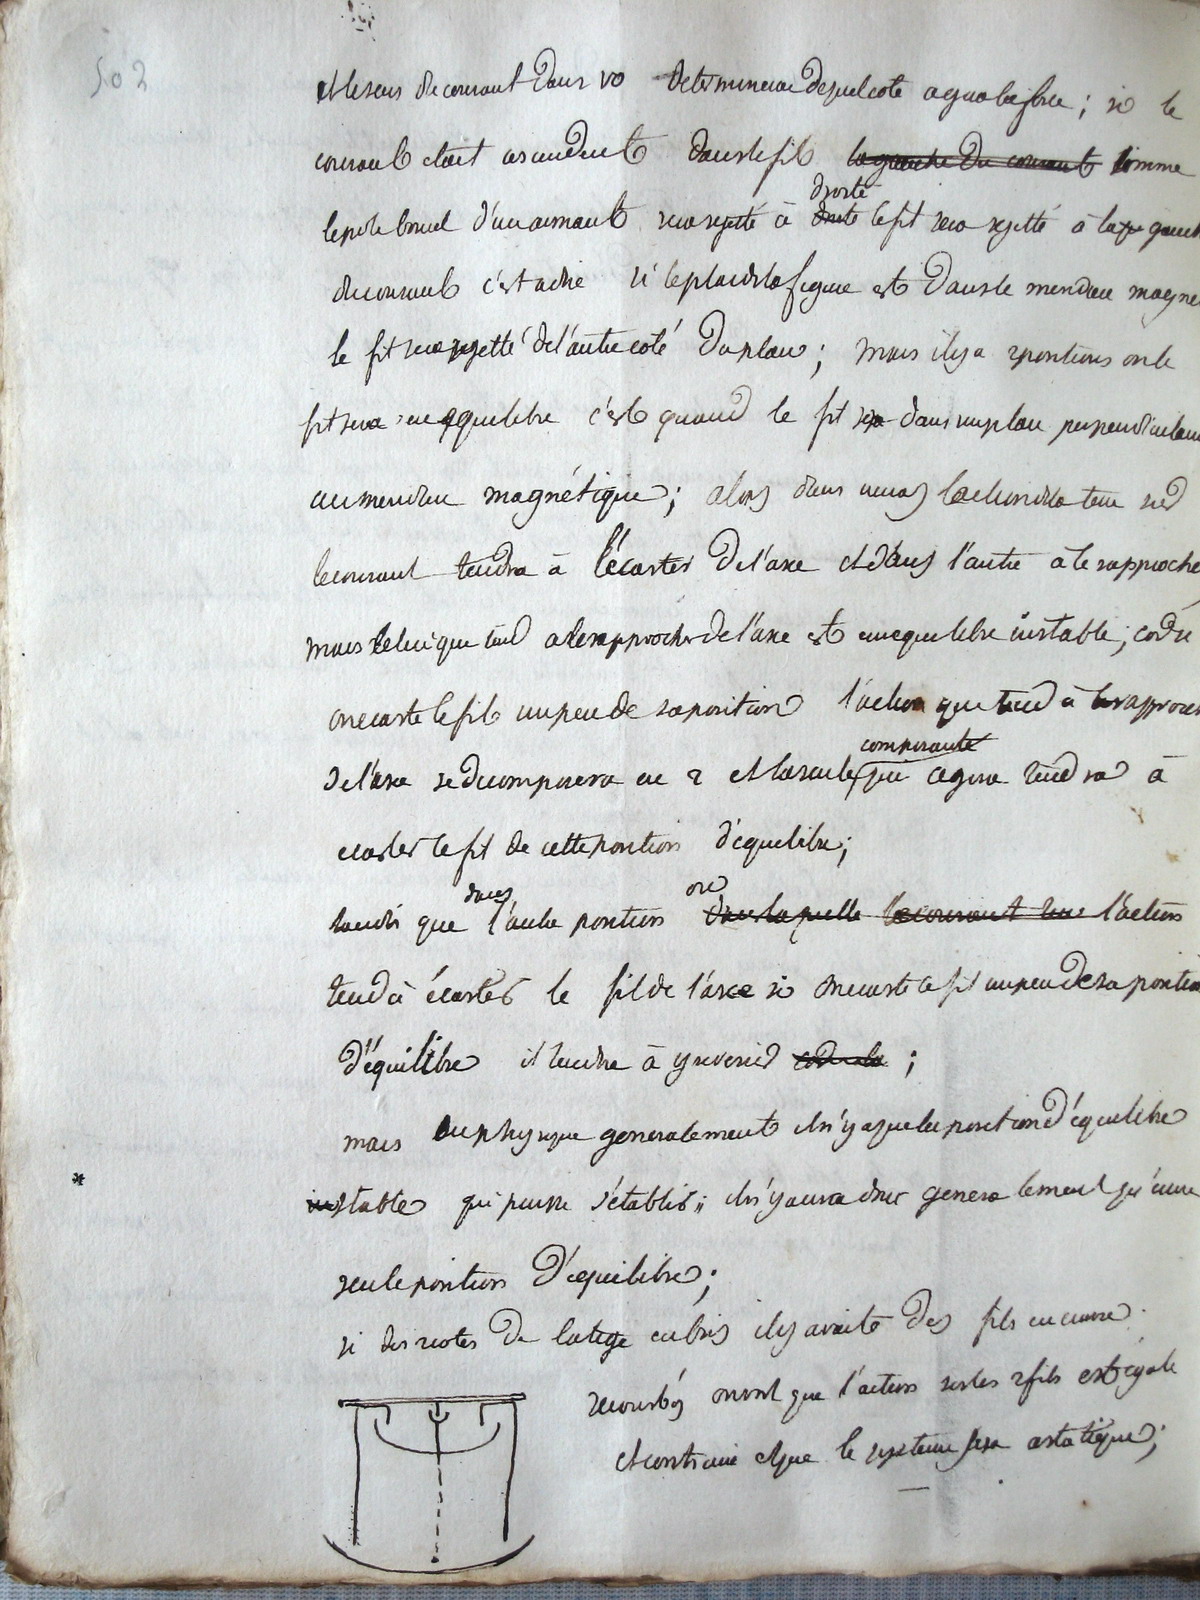 502
et le sens du courant dans vo determinera de quel coté a gua ; si le
courant etait ascendent dans le fil la gauche du courant comme
le pole boreal d'un aimant sera rejetté à droite le fil sera rejetté à la gauch
du courant c'est adire si le plan de la figure est dans le meridien magne
le fil sera rejetté de l'autre coté du plan ; mais il y a 2 positions ou le
fil sera en equilibre c'est quand le fil sera dans un plan perpendiculaire
au meridien magnétique ; alors dans un cas l'action de la terre sur
le courant tendra à l'écarter de l'axe et dans l'autre à le rapproche
mais celui qui tend a le rapprocher de l'axe est un equilibre instable ; car si
on ecarte le fil un peu de sa position l'action qui tend à le rapproche
de l'axe se decomposera en 2 et la seule composante qui agira tendra à
ecarter le fil de cette position d'équilibre ;
tandis que dans l'autre position ou dans laquelle le courant l'action
tend à écarter le fil de l'axe si on ecarte le fil un peu de sa position
d'équilibre il tendra à y revenir ;
mais en physique generalement il n'y a que la position d'équilibre
stable qui puisse s'établir ; il n'y aura donc generalement qu'une
seule position d'équilibre ;
si des cotés de la tige en bois il y avait des fils en cuivre
recourbés on voit que l'action sur les 2 fils est égale
et contraire et que le systeme sera astatique ;